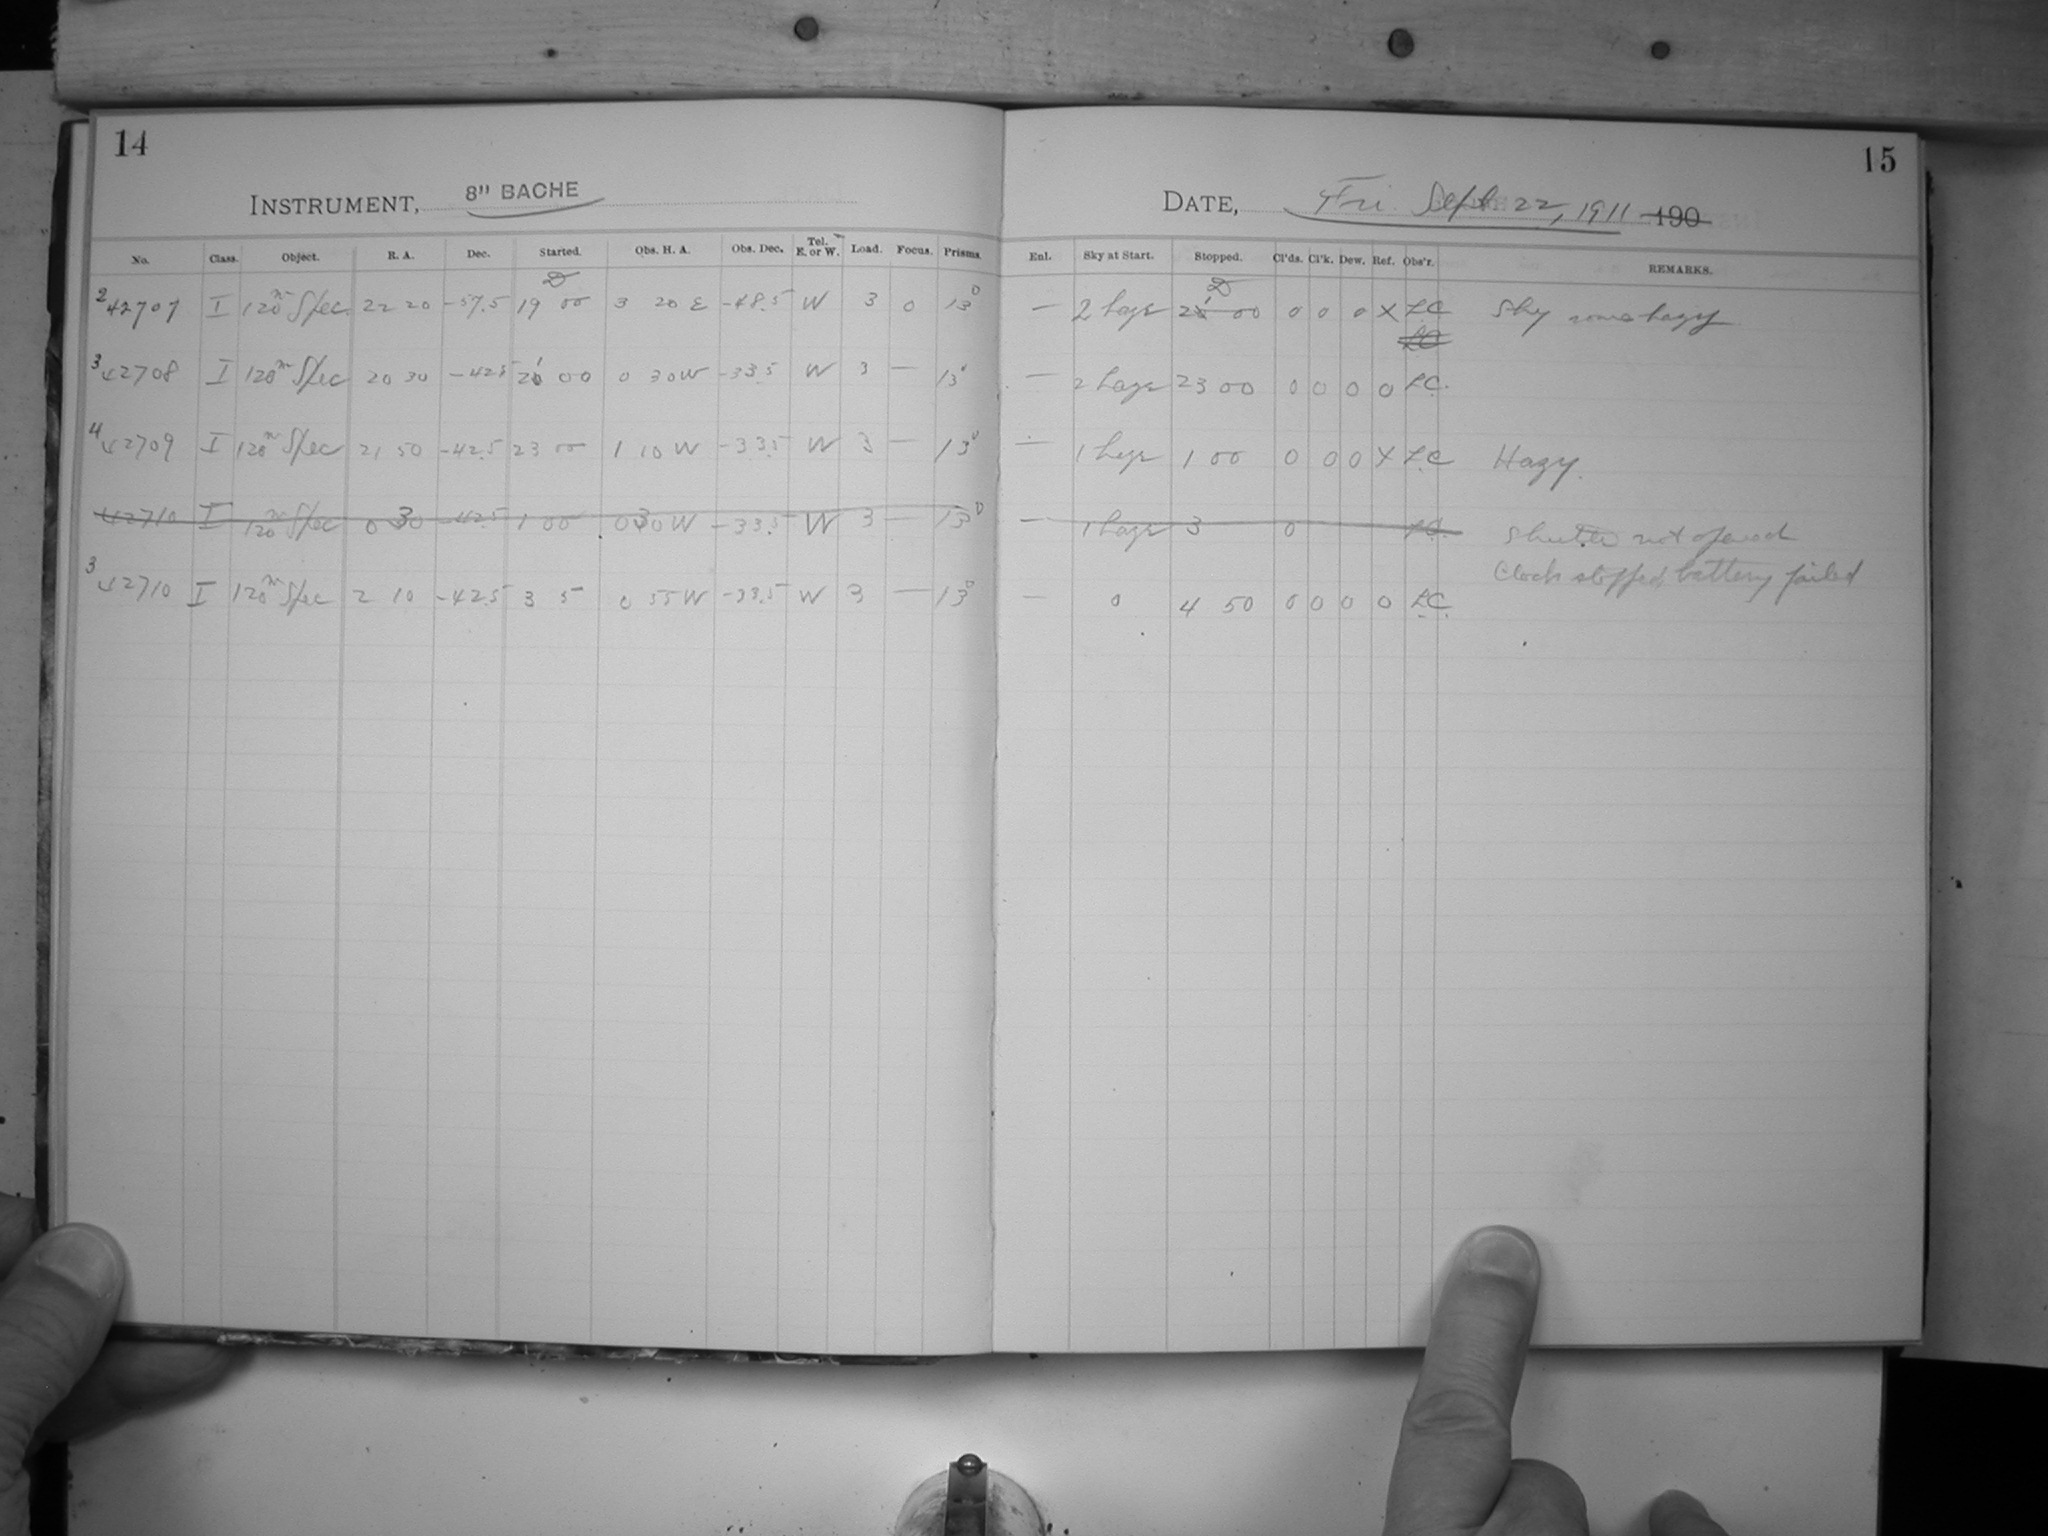 14
15
INSTRUMENT, 8" BACHE
DATE, Fri Sept 22, 1911 190
No. Class. Object. R. A. Dec. Started. Obs. H. A. Obs. Dec. Tel. E. or W. Load. Focus. Prisms. Enl. Sky at Start. Stopped. Cl'ds. Cl'k. Dew. Ref. Obs'r. REMARKS.
D D
2 42707 I 120m Spec. 22 20 -57.5 19 00 3 20 E -48.5 W 3 0 13° — 2 haze 21 00 0 0 0 X LC Sky hazy
LC
3 42708 I 120m Spec 20 30 -42.5 21 00 0 30 W -33.5 W 3 — 13° — 2 haze 23 00 0 0 0 0 LC.
4 42709 I 120m Spec 21 50 -42.5 23 00 1 10 W -33.5 W 3 — 13° — 1 haze 1 00 0 0 0 X LC Hazy.
42710 I 120m Spec 0 30 -42.5 1 00 0 30 W -33.5 W 3 — 13° — 1 haze 3 0 LC. Shutter not opened
Clock stopped, battery failed
3 42710 I 120m Spec 2 10 -42.5 3 5 0 55 W -33.5 W 3 — 13° — 0 4 50 0 0 0 0 LC.